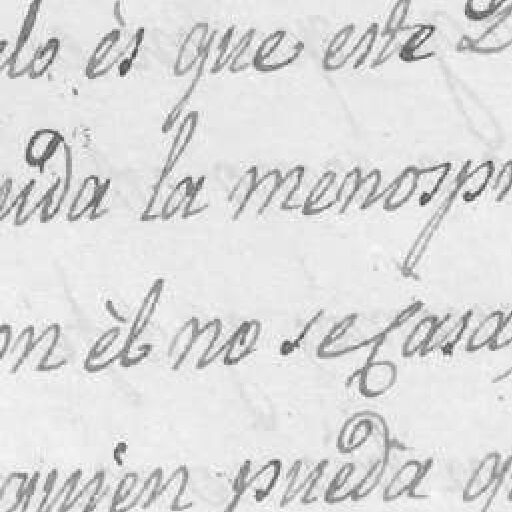 lo. ès que este
uida la menospr
on èl no se Casa
quien pueda q